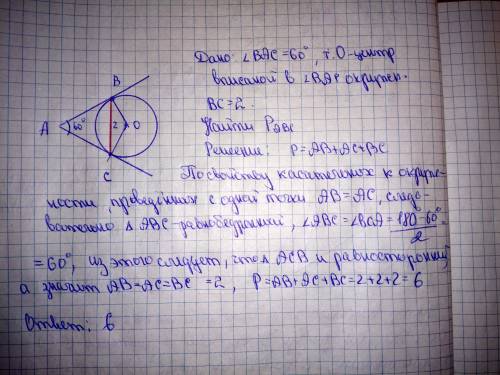 Дано: ∠BAC=60°, т.O-центр
вписаной в ∠BAC окружн.
BC=2.
Найти P△ABC
Решение: P=AB+AC+BC
B
A 60° 2 O
C
По свойству касательных к окруж-
ности, проведённых с одной точки AB=AC, следо-
вательно △ ABC-равнобедренный, ∠ABC=∠BCA=180-60°/2=
=60°, из этого следует, что △ ACB и равносторонний
а значит AB=AC=BC =2, P=AB+AC+BC=2+2+2=6
Ответ: 6